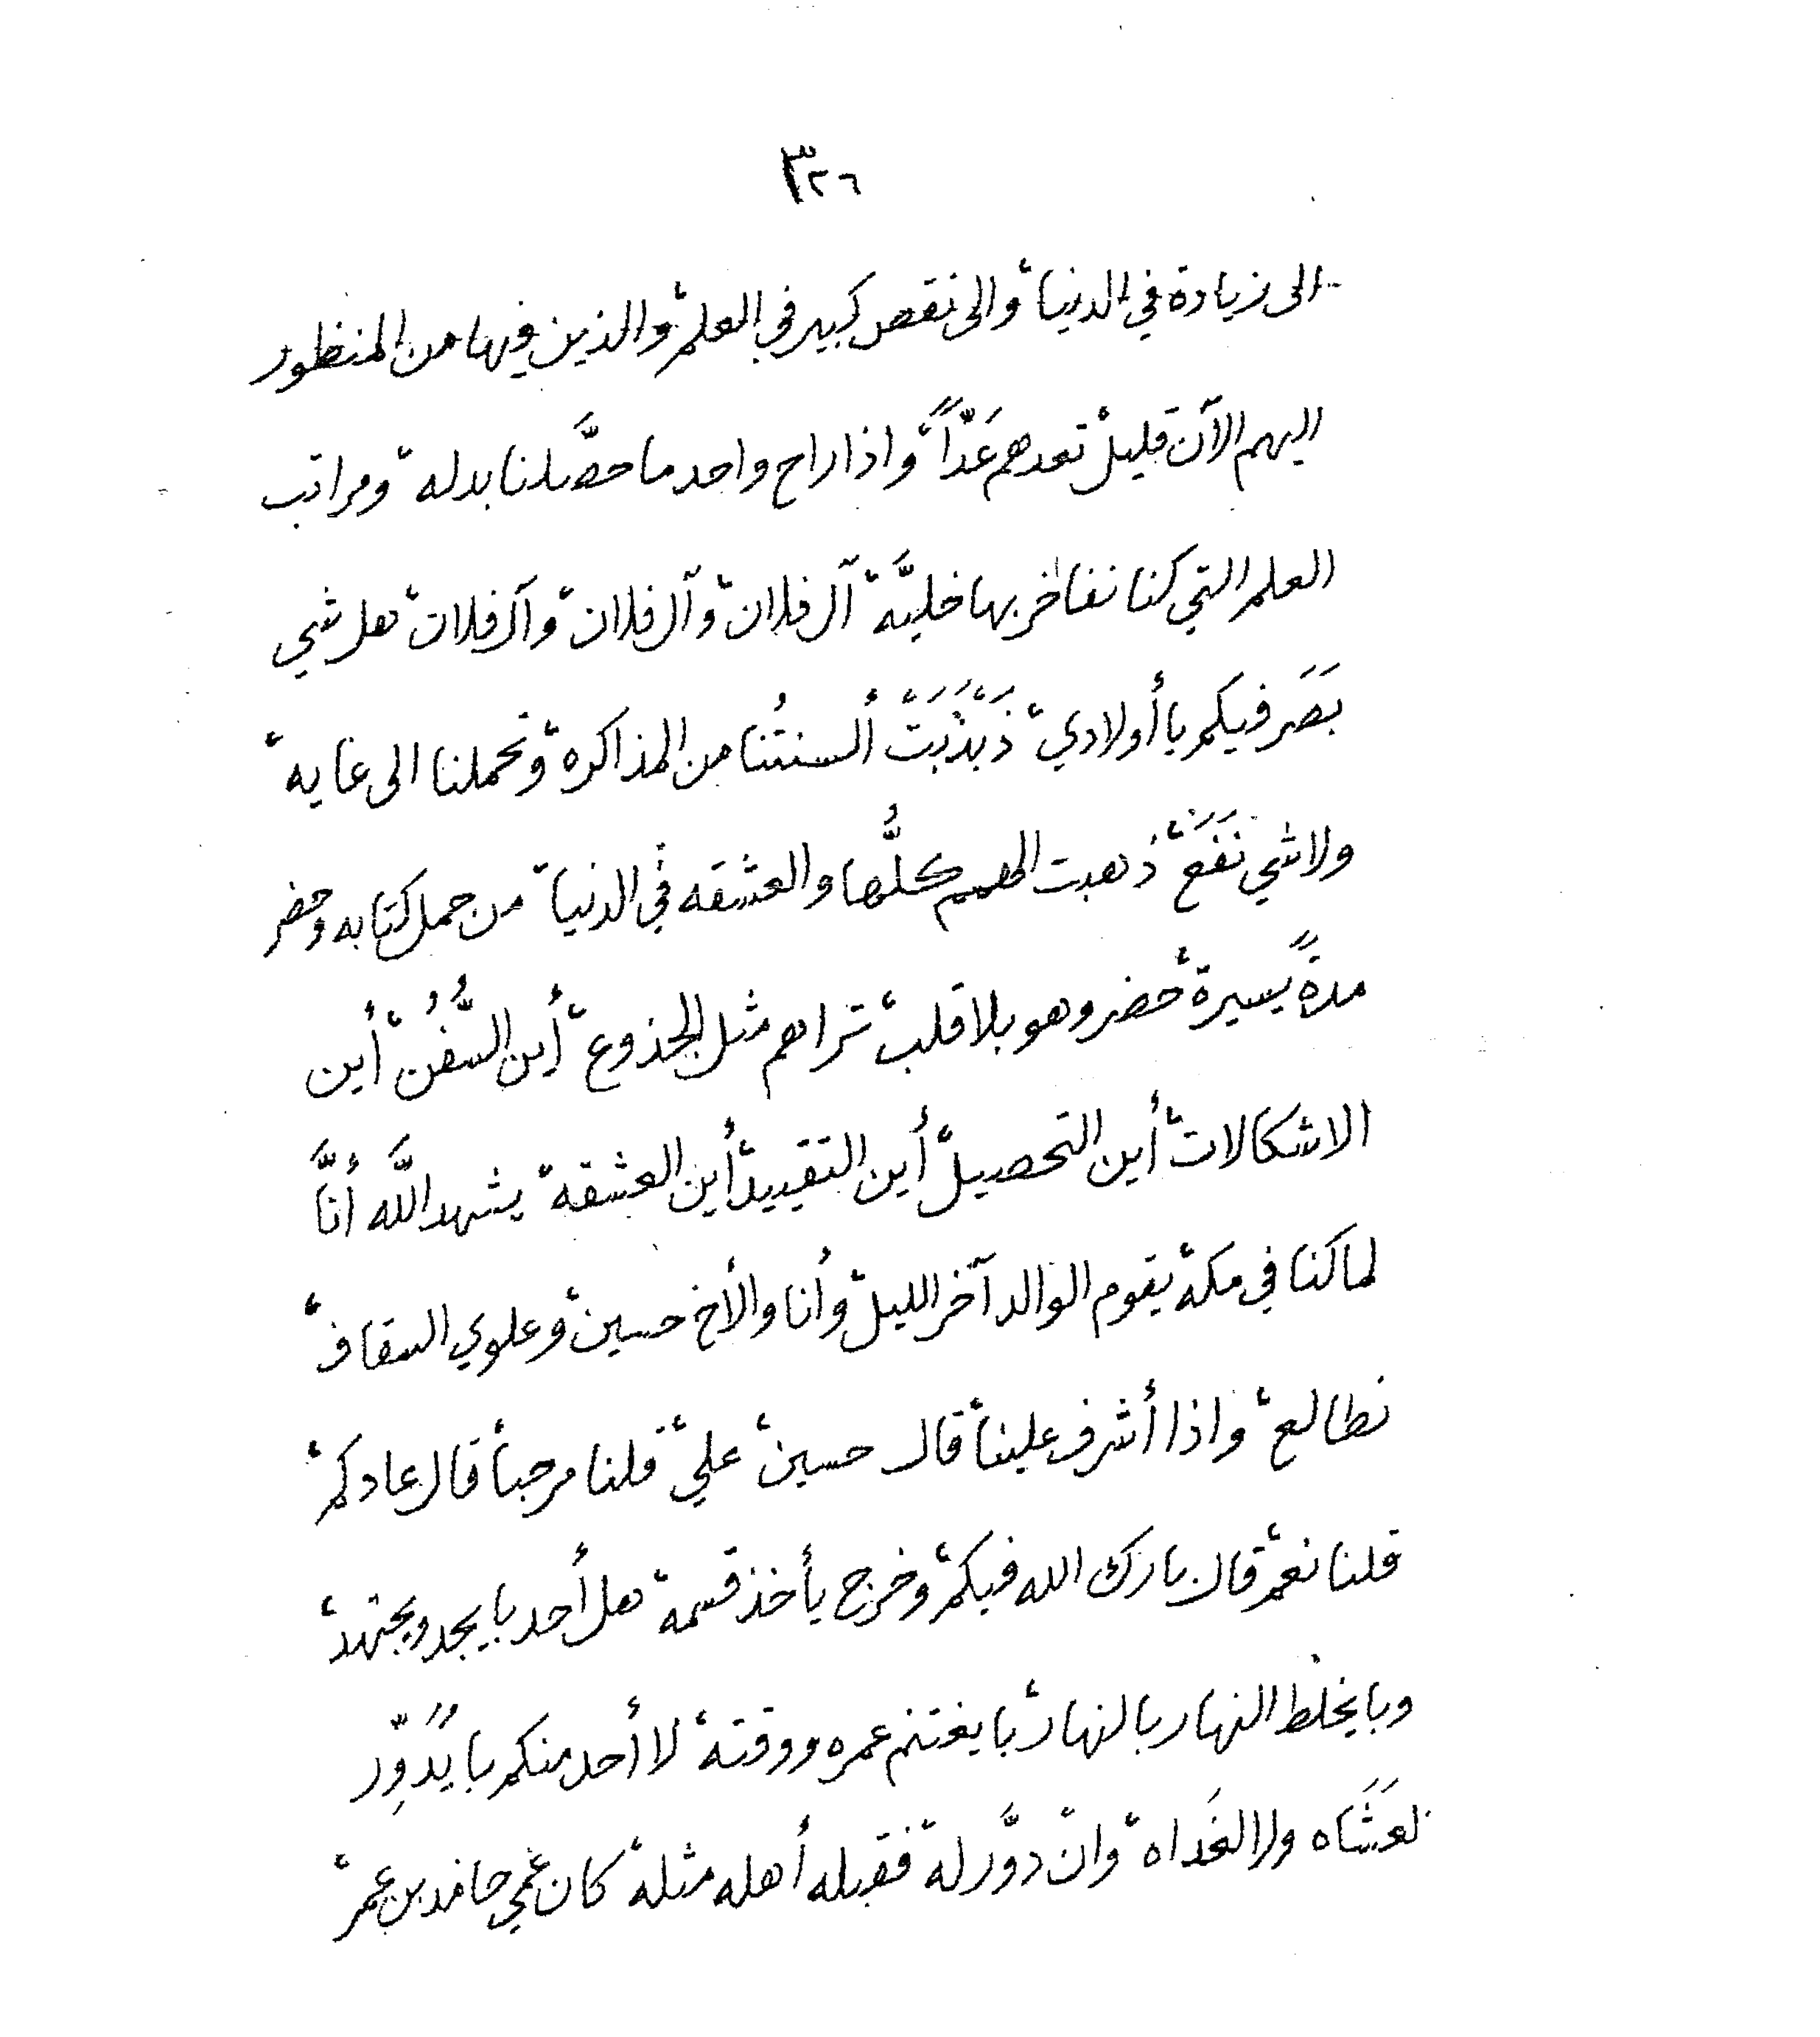 ٣٢٦
الى زيادة في الدنيا، والى نقص كبير في العلم، والذين فيها من المنظور
اليهم الآن قليل، تعدهم عَدّاً، واذا راح واحد ما حصَّلنا بدله، ومراتب
العلم التي كنا نفاخر بها خليَّه، آل فلان، وآل فلان، وآل فلان، هل شي
بَصَر فيكم يا أولادي، ذَبْذَبَتْ ألسنتُنا من المذاكره، وتحملنا الى غايه،
ولا شي نَفَعَ، ذهبت الهمم كلُّها والعشقه في الدنيا، من حمل كتابه وحضر
مدةً يسيرة، حضر وهو بلا قلب، تراهم مثل الجذوع، أين السُّفُن، أين
الاشكالات، أين التحصيل، أين التقييد، أين العشقة، يشهد اللَّه أنَّا
لما كنا في مكة، يقوم الوالد آخر الليل، وأنا والأخ حسين، وعلوي السقاف،
نطالع، واذا أشرف علينا، قال حسين، علي، قلنا مرحبا، قال عادكم،
قلنا نعم، قال بارك الله فيكم، وخرج يأخذ قسمه، هل أحد با يجد ويجتهد،
وبا يخلط النهار بالنهار، با يغتنم عمره ووقته، لا أحد منكم با يُدوِّر
لعَشَاه ولا لغَداه، وان دوَّر له، فقبله أهله مثله، كان عمي حامد بن عمر،